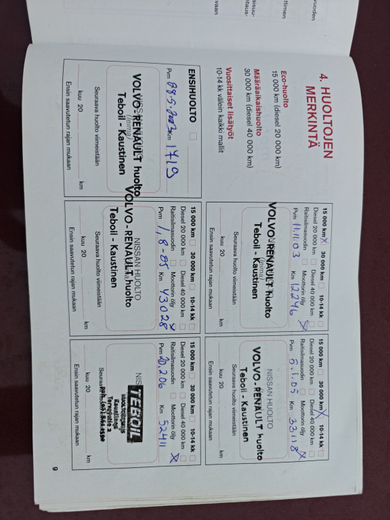 4. HUOLTOJEN
MERKINTÄ
Eco-huolto
15 000 km (diesel 20 000 km)
Määräaikaishuolto
30 000 km (diesel 40 000 km)
Vuosittaiset lisätyöt
10-14 kk välein kaikki mallit
ENSIHUOLTO
VOLVO-RENAULT huolto
Teboil - Kaustinen
Pvm Km 1719
Seuraava huolto viimeistään
kuu 20 km
Ensin saavutetun rajan mukaan
15 000 km X 30 000 km 10-14 kk
Diesel 20 000 km Diesel 40 000 km
Raitisilmasuodin Moottorin öljy X
Pvm 11.11.03 Km 12246
VOLVO-RENAULT huolto
Teboil - Kaustinen
Seuraava huolto viimeistään
kuu 20 km
Ensin saavutetun rajan mukaan
15 000 km 30 000 km X 10-14 kk
Diesel 20 000 km Diesel 40 000 km
Raitisilmasuodin Moottorin öljy X
Pvm Km 33118
NISSAN HUOLTO
VOLVO-RENAULT huolto
Teboil - Kaustinen
Seuraava huolto viimeistään
kuu 20 km
Ensin saavutetun rajan mukaan
15 000 km 30 000 km 10-14 kk
Diesel 20 000 km Diesel 40 000 km
Raitisilmasuodin Moottorin öljy X
Pvm Km 43028
NISSAN HUOLTO
VOLVO-RENAULT huolto
Teboil - Kaustinen
Seuraava huolto viimeistään
kuu 20 km
Ensin saavutetun rajan mukaan
15 000 km 30 000 km 10-14 kk
Diesel 20 000 km Diesel 40 000 km
Raitisilmasuodin Moottorin öljy X
Pvm Km 52411
TEBOIL
kuu 20 km
Ensin saavutetun rajan mukaan
9